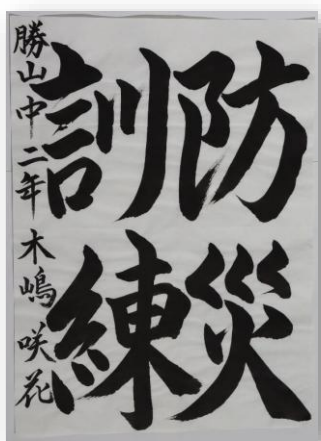 防災
訓練
勝山中二年 木嶋 咲花